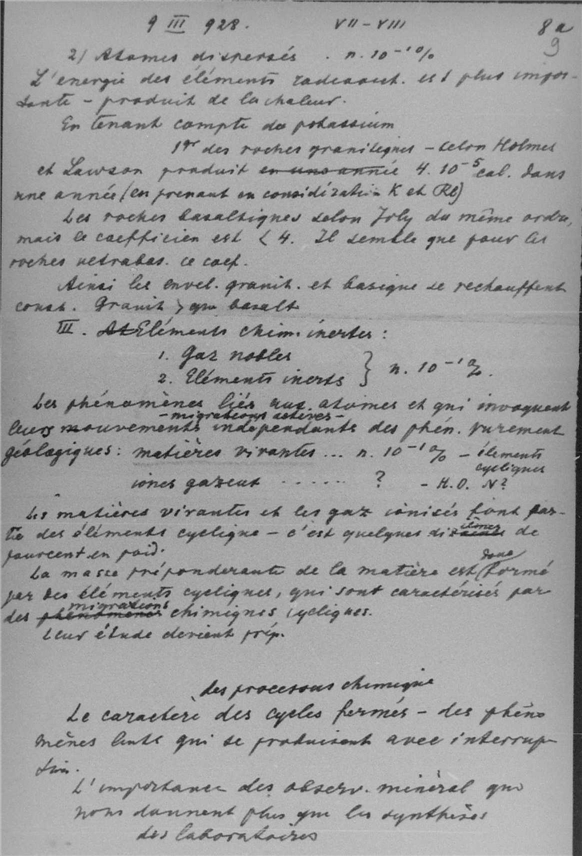 9 III 928. VII-VIII 8a
9
2) Atomes dispersés . n. 10⁻¹%
L'energie des éléments radioact. est plus impor-
tante – produit de la chaleur.
En tenant compte du potassium
1 gr des roches granitiques – selon Holmes
et Lawson produit en une année 4. 10⁻⁵ cal. dans
une année (en prenant en considération K et Rb)
Les roches basaltiques selon Joly du même ordre,
mais le coefficien est < 4. Il semble que pour les
roches ultrabas. ce coef.
Ainsi les envel. granit. et basique se rechauffent
const. Granit > que basalt
III. Eléments chim. inertes :
1. Gaz nobles
2. Eléments inerts } n. 10⁻¹%.
Les phénomènes liés aux atomes et qui invoquent
– migrations actives –
leurs mouvements independants des phén. purement
géologiques : matières vivantes ... n. 10⁻¹% – éléments
cycliques
ions gazeux ...... ? – H.O. N?
Les matières vivantes et les gaz ionisés font par-
tie des éléments cyclique – c'est quelques dixièmes de
pourcent en poid.
La masse préponderante de la matière est donc formé
par des éléments cycliques, qui sont caractérisés par
migrations
des phénomènes chimiques cycliques.
Leur étude devient prép.
des processus chimique
Le caractère des cycles fermés – des phéno
mènes lents qui se produisent avec interrup-
tion.
L'importance des observ. minéral que
nous donnent plus que les synthèses
des laboratoires